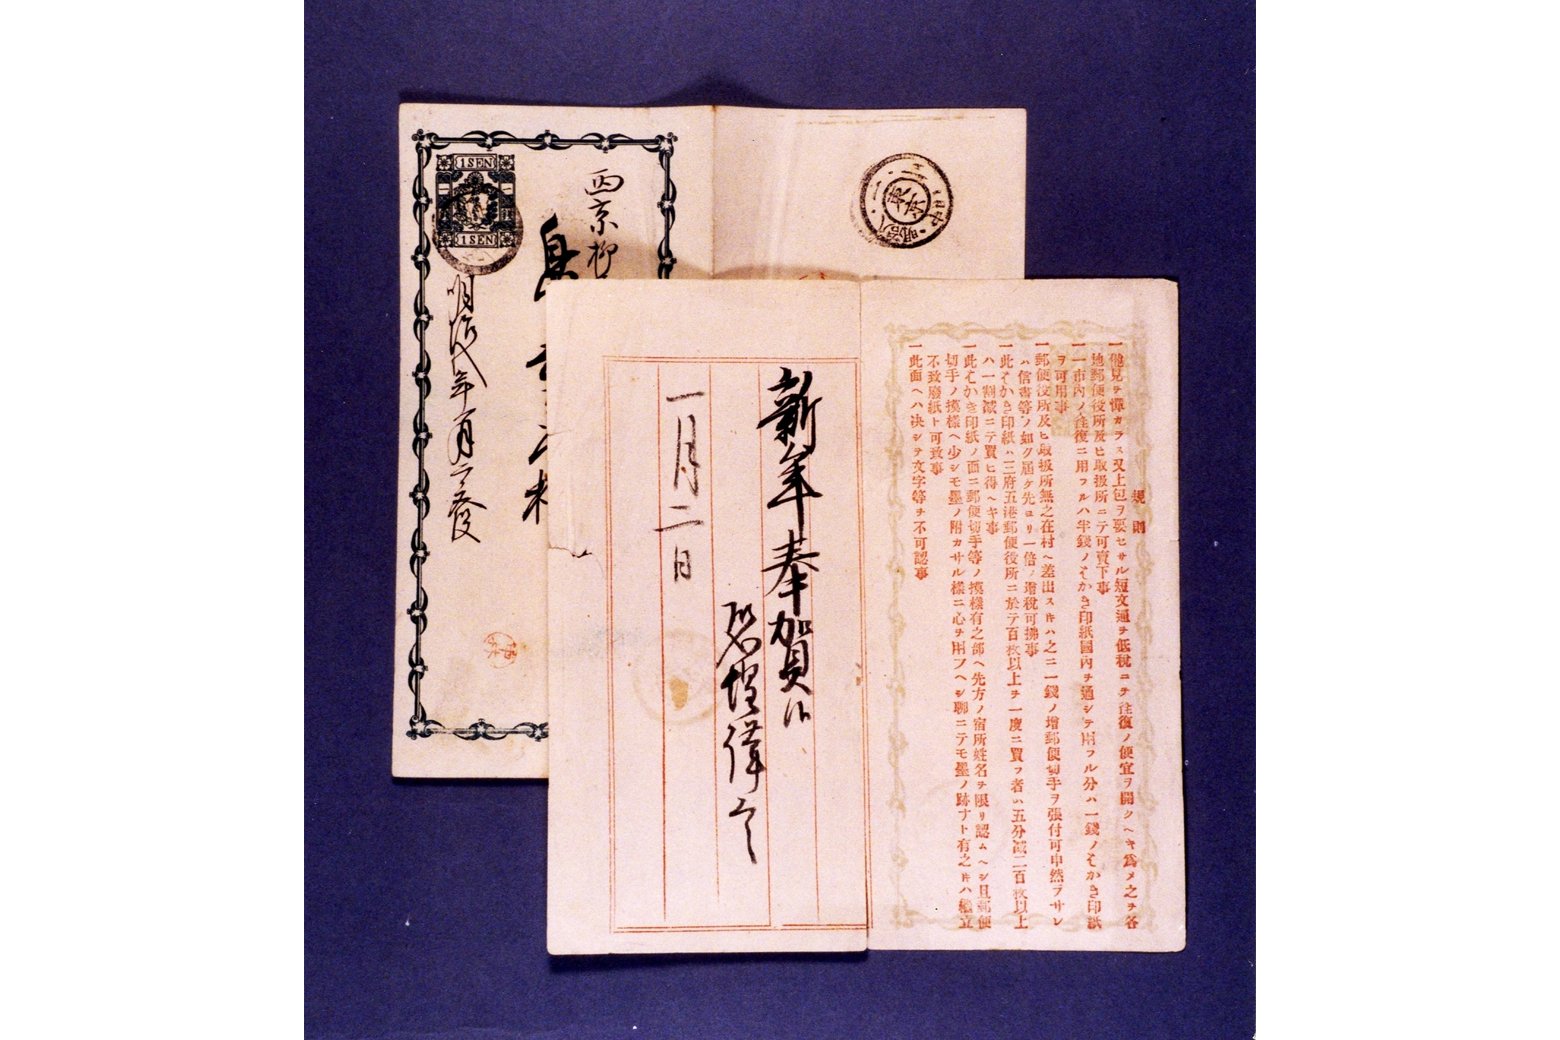 1 SEN
1 SEN
西京柳
明治八年一月二日
東京
新年奉賀
一月二日
規則
一他見ヲ憚カラス又上包ヲ要セサル短文通ヲ低税ニテ往復ノ便宜ヲ開クヘキ為メ之ヲ各
地郵便役所及ヒ取扱所ニテ可賣下事
一一市內ノ往復ニ用フルハ半錢ノはかき印紙國內ヲ通シテ用フル分ハ一錢ノはかき印紙
ヲ可用事
一郵便役所及ヒ取扱所無之在村ヘ差出スキハ之ニ一錢ノ增郵便切手ヲ張付可申然ラサレ
ハ信書等ノ如ク届ケ先ヨリ一倍ノ增税可拂事
一此はかき印紙ハ三府五港郵便役所ニ於テ百枚以上ヲ一度ニ買フ者ハ五分減二百枚以上
ハ一割減ニテ買ヒ得ヘキ事
一此はかき印紙ノ面ニ郵便切手等ノ摸樣有之部ヘ先方ノ宿所姓名ヲ限リ認ムヘシ且郵便
切手ノ摸樣ヘ少シモ墨ノ附カサル樣ニ心ヲ用フヘシ聊ニテモ墨ノ跡ナト有之キハ
不致廢紙ト可致事
一此面ヘハ决シテ文字等ヲ不可認事